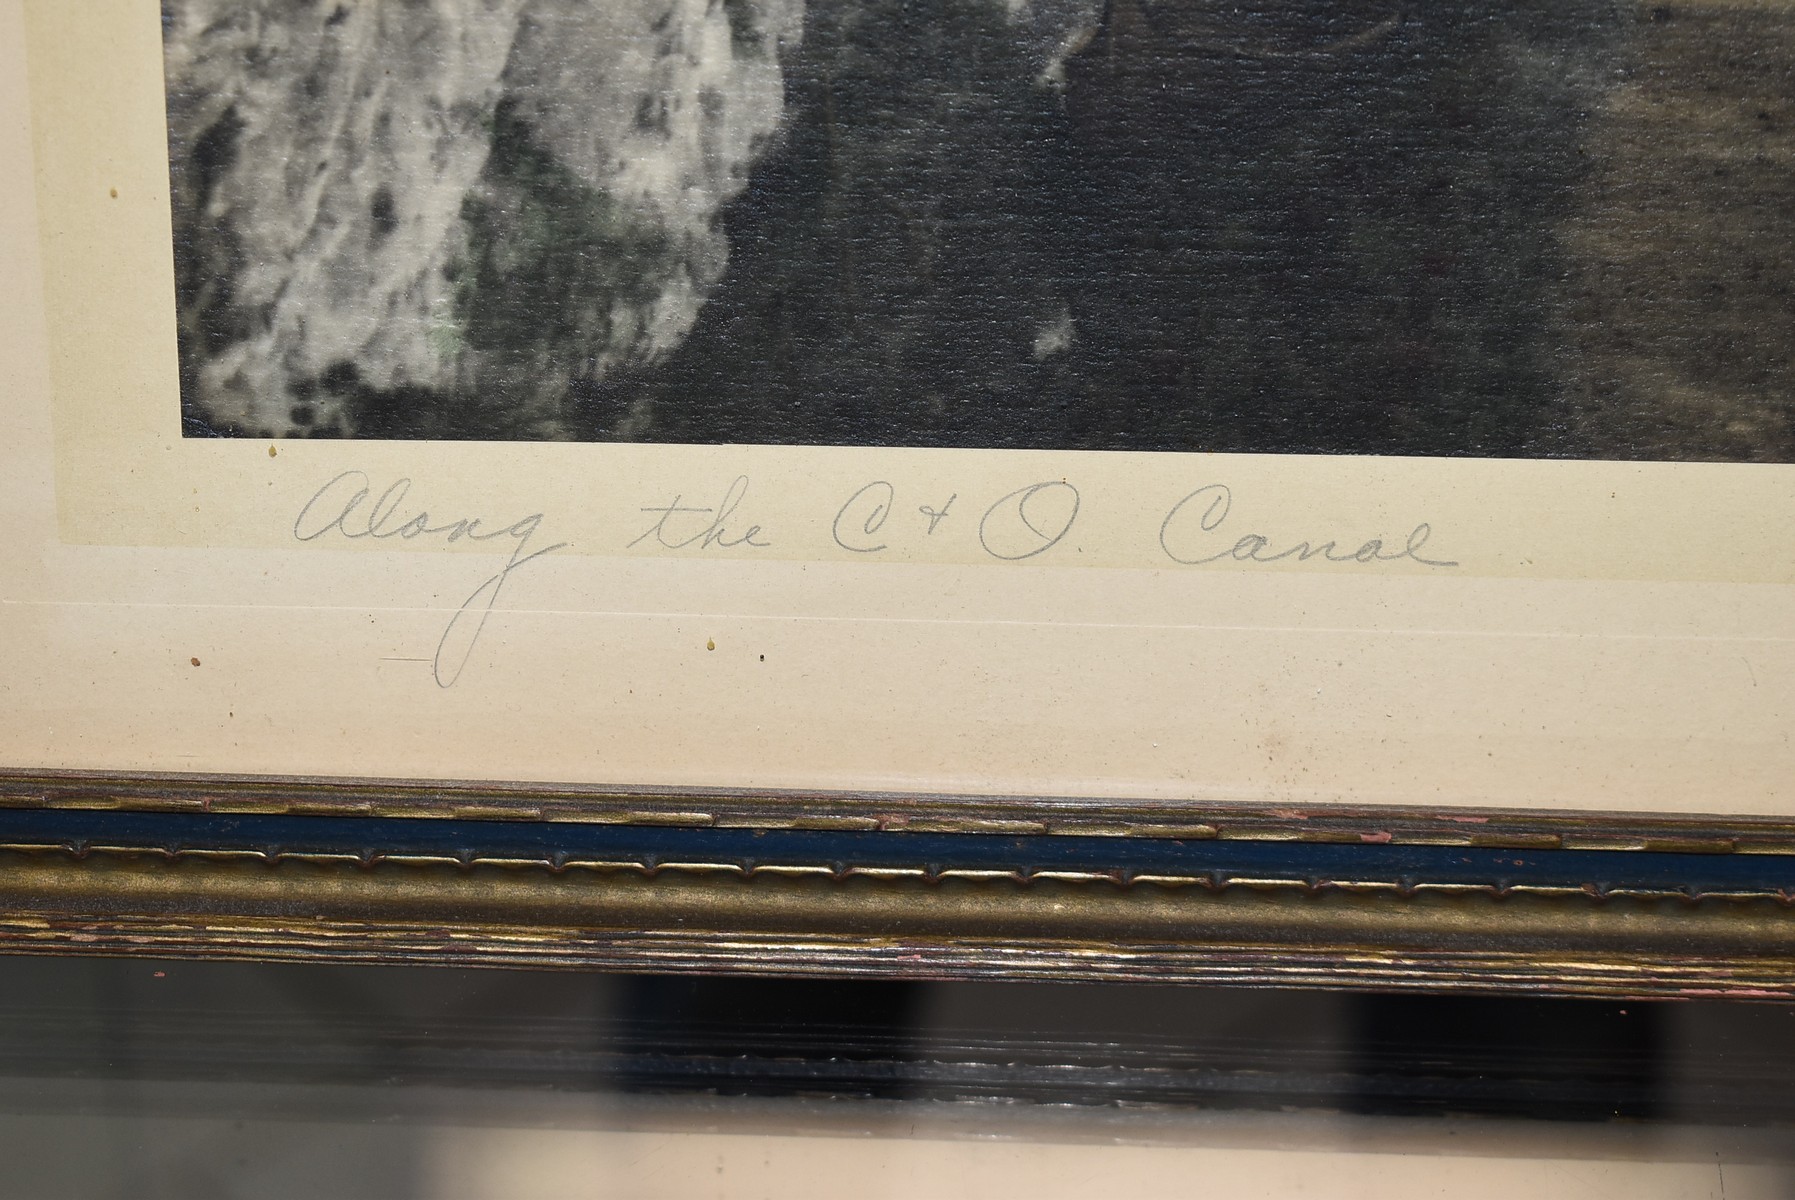 Along the C & O. Canal